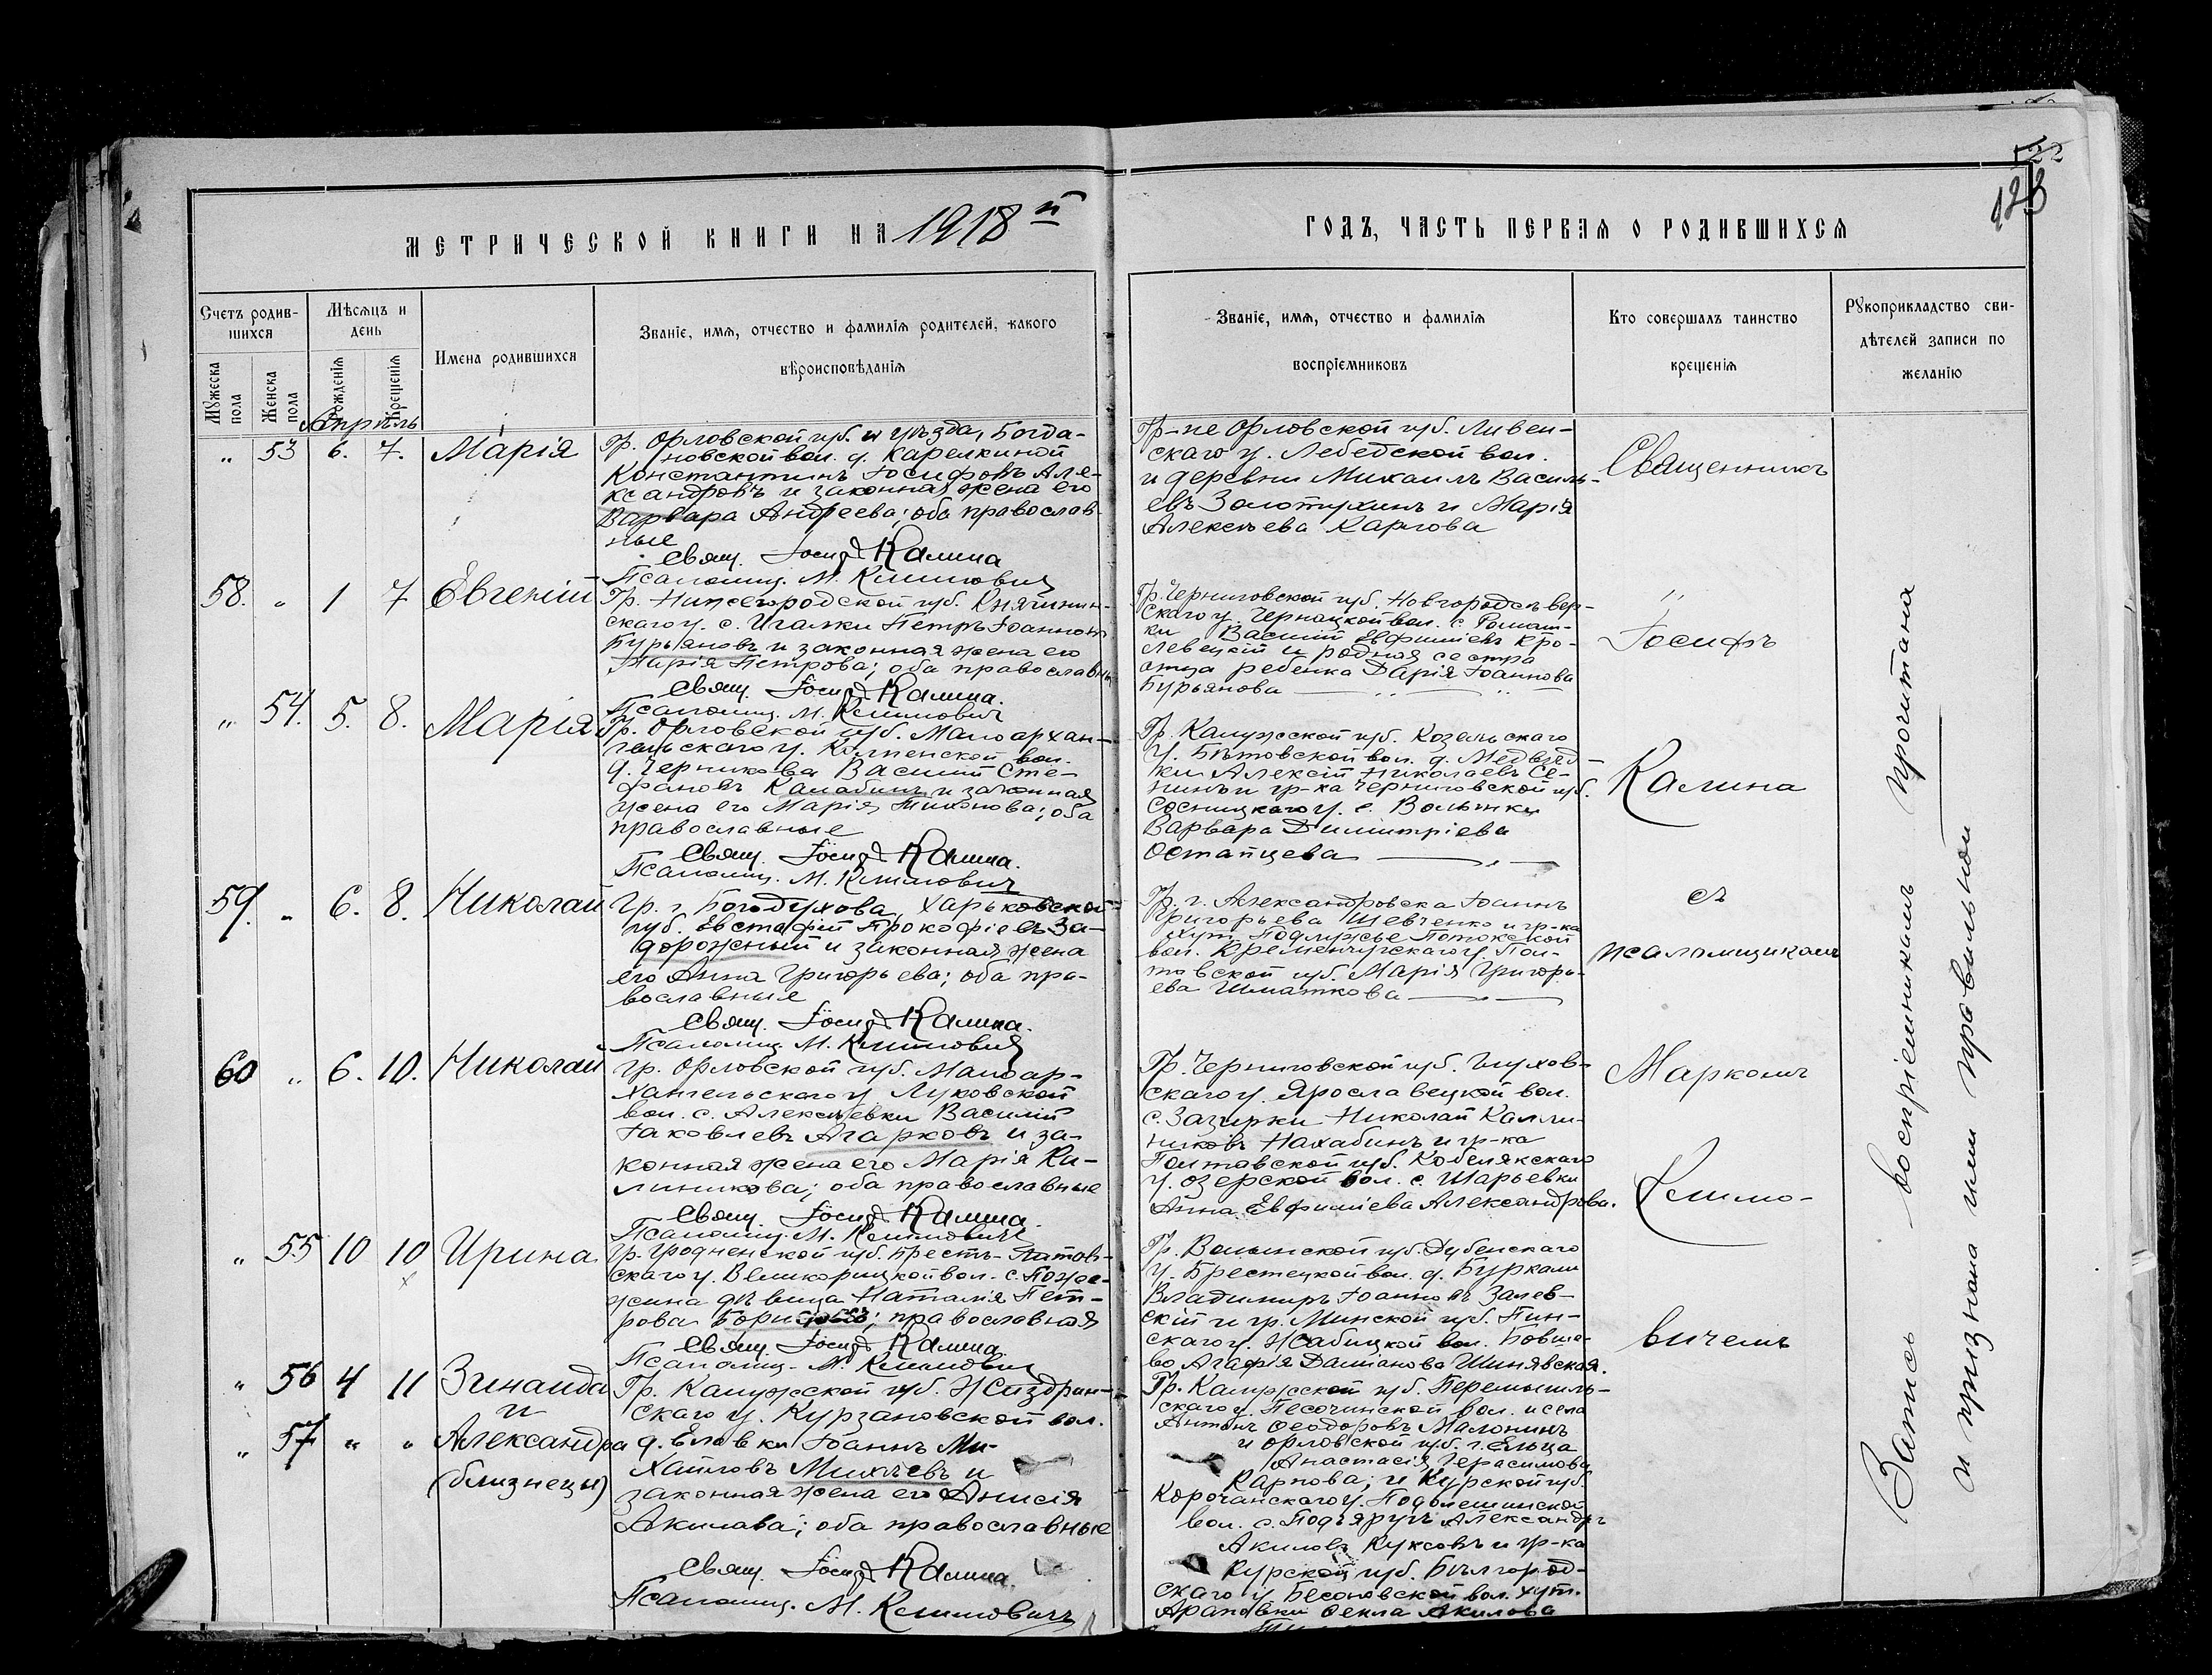 122
123
МЕТРИЧЕСКОЙ КНИГИ НА 1918й
ГОДЪ, ЧАСТЬ ПЕРВАЯ О РОДИВШИХСЯ
Счетъ родив-
шихся
Мужеска пола
Женска пола
Мѣсяцъ и
день
Рожденія
Крещенія
Имена родившихся
Званіе, имя, отчество и фамилія родителей, какого
вѣроисповѣданія
Званіе, имя, отчество и фамилія
воспріемниковъ
Кто совершалъ таинство
крещенія
Рукоприкладство сви-
дѣтелей записи по
желанію
Апрѣль
" 53 6. 7. Марія
Гр. Орловской губ. и уѣзда, Богда-
новской вол. д. Карелкиной
Константинъ Іосифовъ Але-
ксандровъ и законная жена его
Варвара Андреева; оба православ-
ные
Свящ. Іосифъ Калина
Псаломщ. М. Климовичъ
Гр-не Орловской губ. Ливен-
скаго у. Лебедской вол.
и деревни Михаилъ Василь-
евъ Золотухинъ и Марія
Алексѣева Каргова
58. " 1 7 Евгеній
Гр. Нижегородской губ. Княгинин-
скаго у. с. Игалки Петръ Іоанновъ
Бурьяновъ и законная жена его
Марія Петрова; оба православны
Свящ. Іосифъ Калина.
Псаломщ. М. Климовичъ
Гр. Черниговской губ. Новгородсѣвер-
скаго у. Чернацкой вол. с. Ромаш-
ки Василій Евфиміевъ Кро-
левецкій и родная сестра
отца ребенка Дарія Іоаннова
Бурьянова
" 54. 5. 8. Марія
Гр. Орловской губ. Малоархан-
гельскаго у. Колпенской вол.
д. Черникова Василій Сте-
фановъ Калабинъ и законная
жена его Марія Тихонова; оба
православные
Свящ. Іосифъ Калина.
Псаломщ. М. Климовичъ
Гр. Калужской губ. Козельскаго
у. Бѣтовской вол. д. Медвѣд-
ки Алексій Николаевъ Се-
нинъ и гр-ка Черниговской губ.
Сосницкаго у. с. Волынки
Варвара Димитріева
Остапцева
59. " 6. 8. Николай
Гр. г. Богодухова, Харьковской
губ. Евстафій Прокофіевъ За-
дорожный и законная жена
его Анна Григорьева; оба пра-
вославные
Свящ. Іосифъ Калина.
Псаломщ. М. Климовичъ
Гр. г. Александровска Іоаннъ
Григорьева Шевченко и гр-ка
хут. Подлужье Потокской
вол. Кременчугскаго у. Пол-
тавской губ. Марія Григорь-
ева Шматкова
60 " 6. 10. Николай
Гр. Орловской губ. Малоар-
хангельскаго у. Луковской
вол. с. Алексѣевки Василій
Іаковлевъ Агарковъ и за-
конная жена его Марія Ка-
линикова; оба православные
Свящ. Іосифъ Калина.
Псаломщ. М. Климовичъ
Гр. Черниговской губ. Глухов-
скаго у. Ярославецкой вол.
с. Зазирки Николай Калли-
никовъ Нахабинъ и гр-ка
Полтавской губ. Кобелякскаго
у. Озерской вол. с. Шарьевки
Анна Евфиміева Александрова.
" 55 10 10 Ирина
Гр. Гродненской губ. Брестъ-Литов-
скаго у. Великорицкой вол. с. Поже-
жина дѣвица Наталія Пет-
рова; православная
Свящ. Іосифъ Калина
Псаломщ. М. Климовичъ
Гр. Волынской губ. Дубенскаго
у. Брестецкой вол. д. Буркали
Владимиръ Іоанновъ Залев-
скій и гр. Минской губ. Пин-
скаго у. Жабицкой вол.
Агафія Даміанова Шинявская.
" 56 4 11 Зинаида
и
" 57 " " Александра
(близнецы)
Гр. Калужской губ. Жиздрин-
скаго у. Курзановской вол.
д. Еловки Іоаннъ Ми-
хайловъ Михѣевъ и
законная жена его Анисія
Акилова; оба православные
Свящ. Іосифъ Калина.
Псаломщ. М. Климовичъ
Гр. Калужской губ. Перемышль-
скаго у. Песочинской вол. и села
Антонъ Ѳеодоровъ Малонинъ
и Орловской губ. г. Ельца
Анастасія Герасимова
Карпова; и Курской губ.
Корочанскаго у. Подолешинской
вол. с. Подъяругъ Александръ
Акиловъ Куксовъ и гр-ка
Курской губ. Бѣлгород-
скаго у. Бесоновской вол. хут.
Араповки Ѳекла Акилова
Священникъ
Іосифъ
Калина
съ
псаломщикомъ
Маркомъ
Климо-
вичемъ
Запись воспріемникамъ прочитана
и признана ими правильной